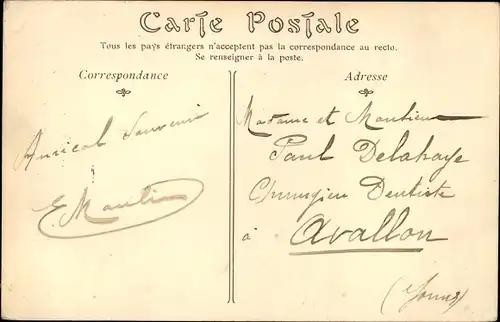 Carte Postale
Tous les pays étrangers n'acceptent pas la correspondance au recto.
Se renseigner à la poste.
Correspondance
Adresse
Amical Souvenir
E. Moulin
Madame et Monsieur
Paul Delahaye
Chirurgien Dentiste
à Avallon
(Yonne)